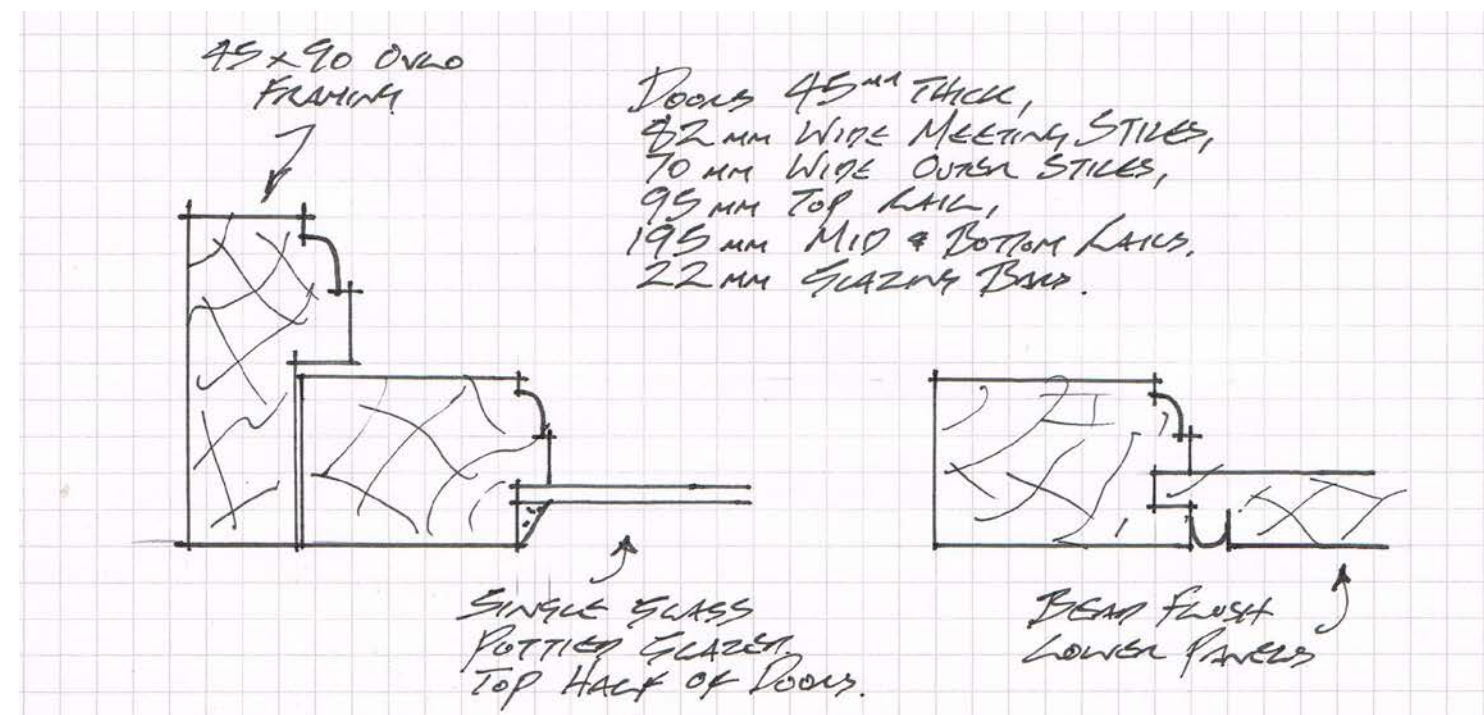 45 x 90 OVLO
FRAMING
DOORS 45mm THICK,
82 mm WIDE MEETING STILES,
70 mm WIDE OUTER STILES,
95 mm TOP RAIL,
195 mm MID & BOTTOM RAILS.
22 mm GLAZING BARS.
SINGLE GLASS
PUTTIED GLAZED.
TOP HALF OF DOORS.
BEAD FLUSH
LOWER PANELS